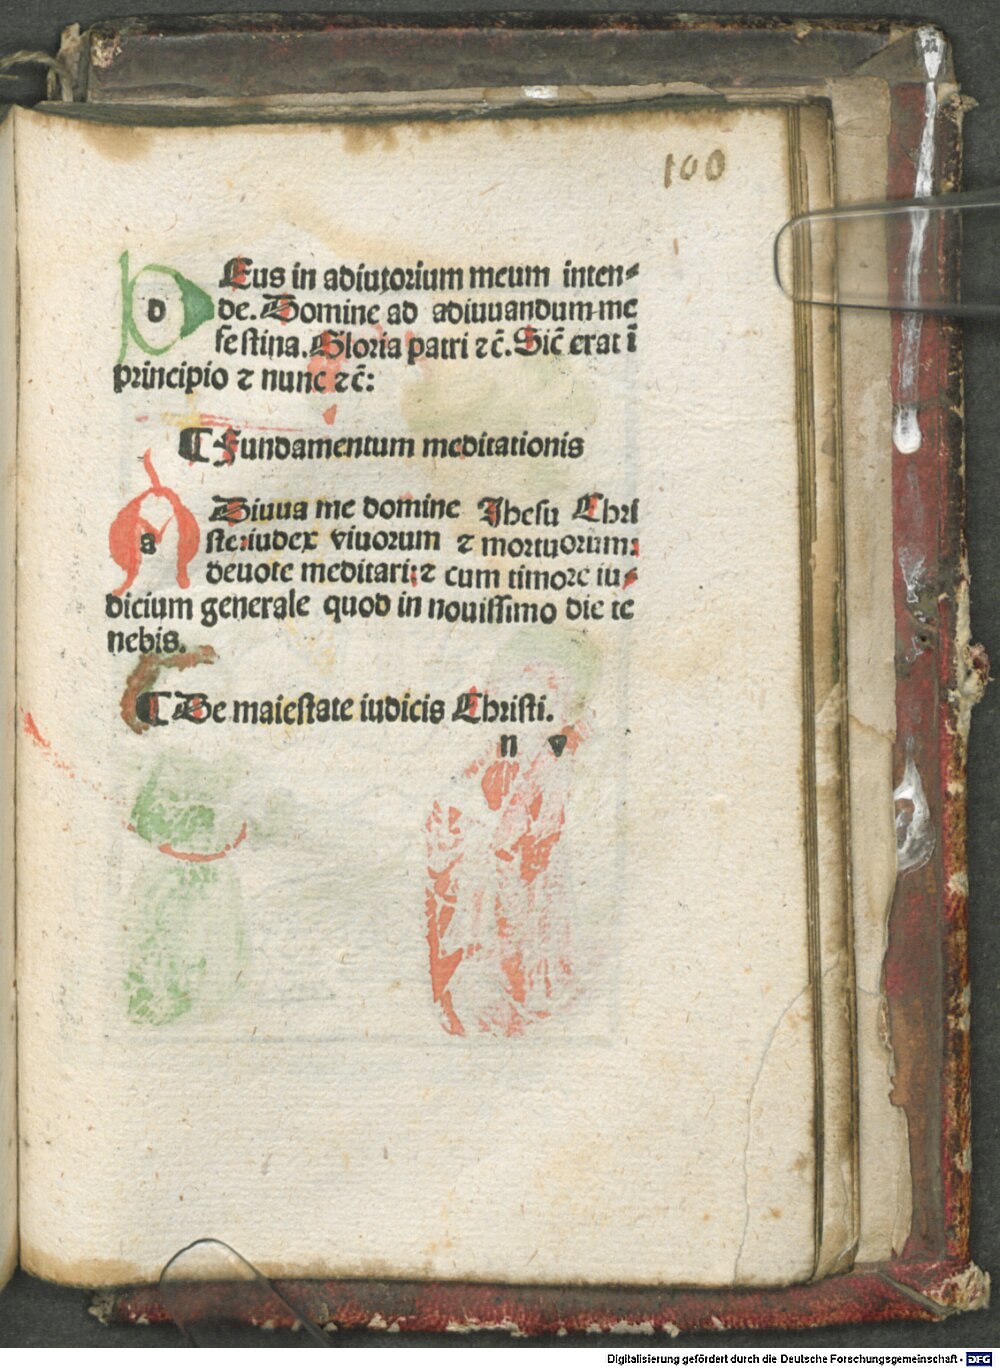 100
DEus in adiutorium meum inten⸗
de. Domine ad adiuuandum me
festina. Gloria patri ⁊c̄. Sic̄ erat ī
principio ⁊ nunc ⁊c̄:
¶ Fundamentum meditationis
ADiuua me domine Jhesu Chri
ste: iudex viuorum ⁊ mortuorum:
deuote meditari: ⁊ cum timore iu⸗
dicium generale quod in nouissimo die te
nebis.
¶ De maiestate iudicis Christi.
n v
Digitalisierung gefördert durch die Deutsche Forschungsgemeinschaft - DFG